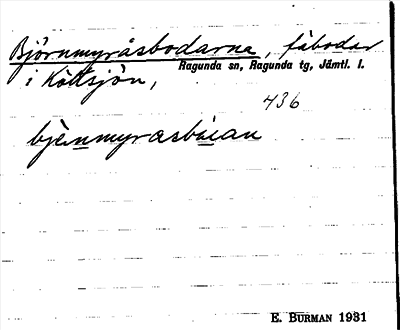 Björnmyråsbodarna, fäbodar
Ragunda sn, Ragunda tg, Jämtl. l.
i Köttsjön,
436
bjènmyrasbùian
E. BURMAN 1931